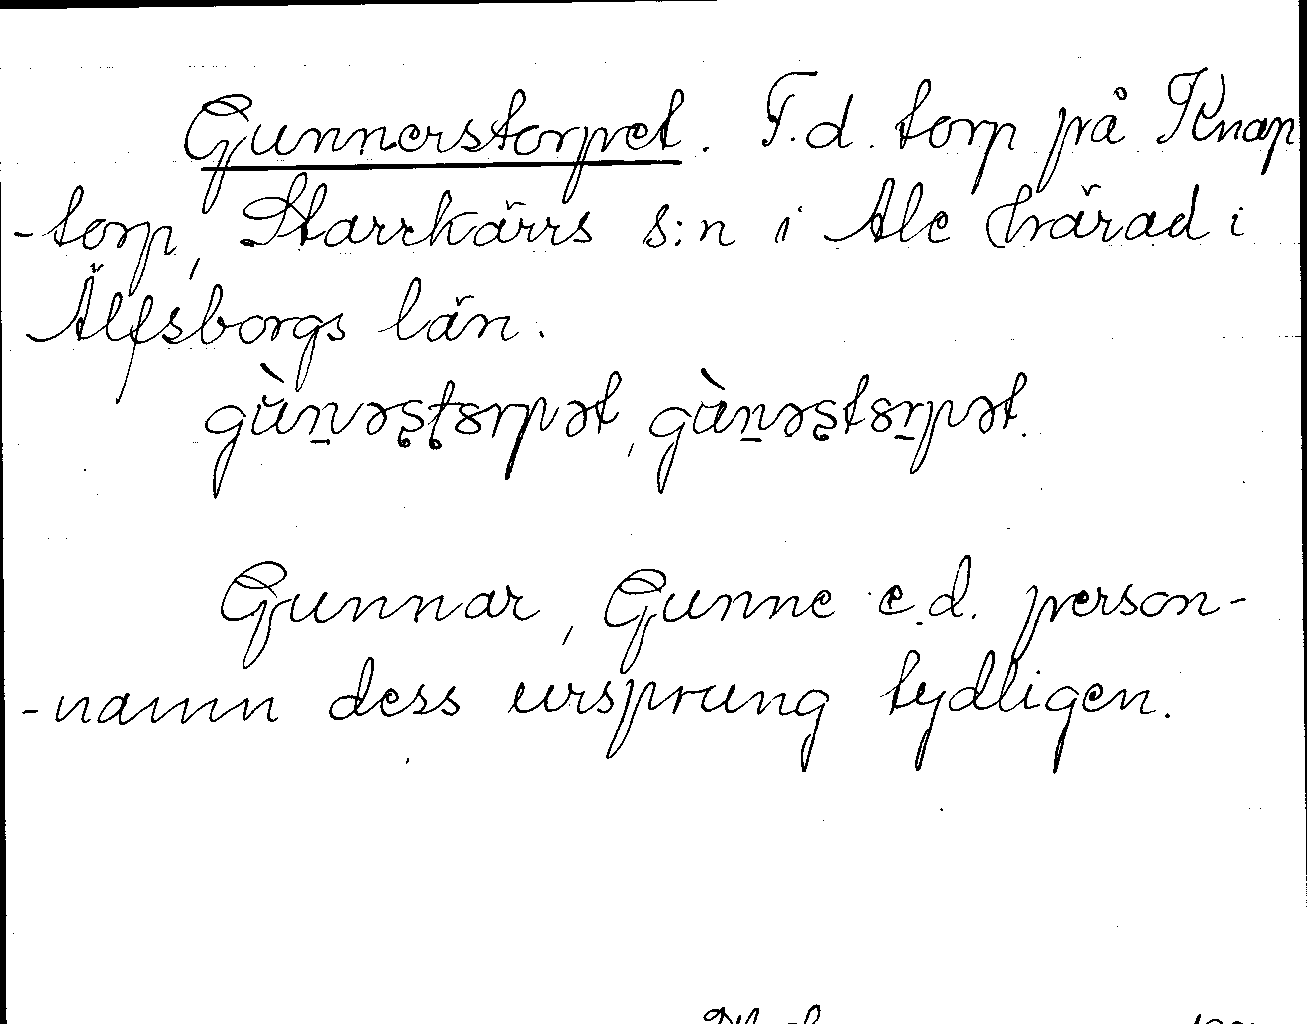 Gunnerstorpet. F.d. torp på Knap
-torp, Starrkärrs s:n i Ale härad i
Älfsborgs län.
gùn̠əʂʈɞrpət, gùn̠əʂtɞr̠pət.
Gunnar, Gunne e.d. person-
-namn dess ursprung tydligen.